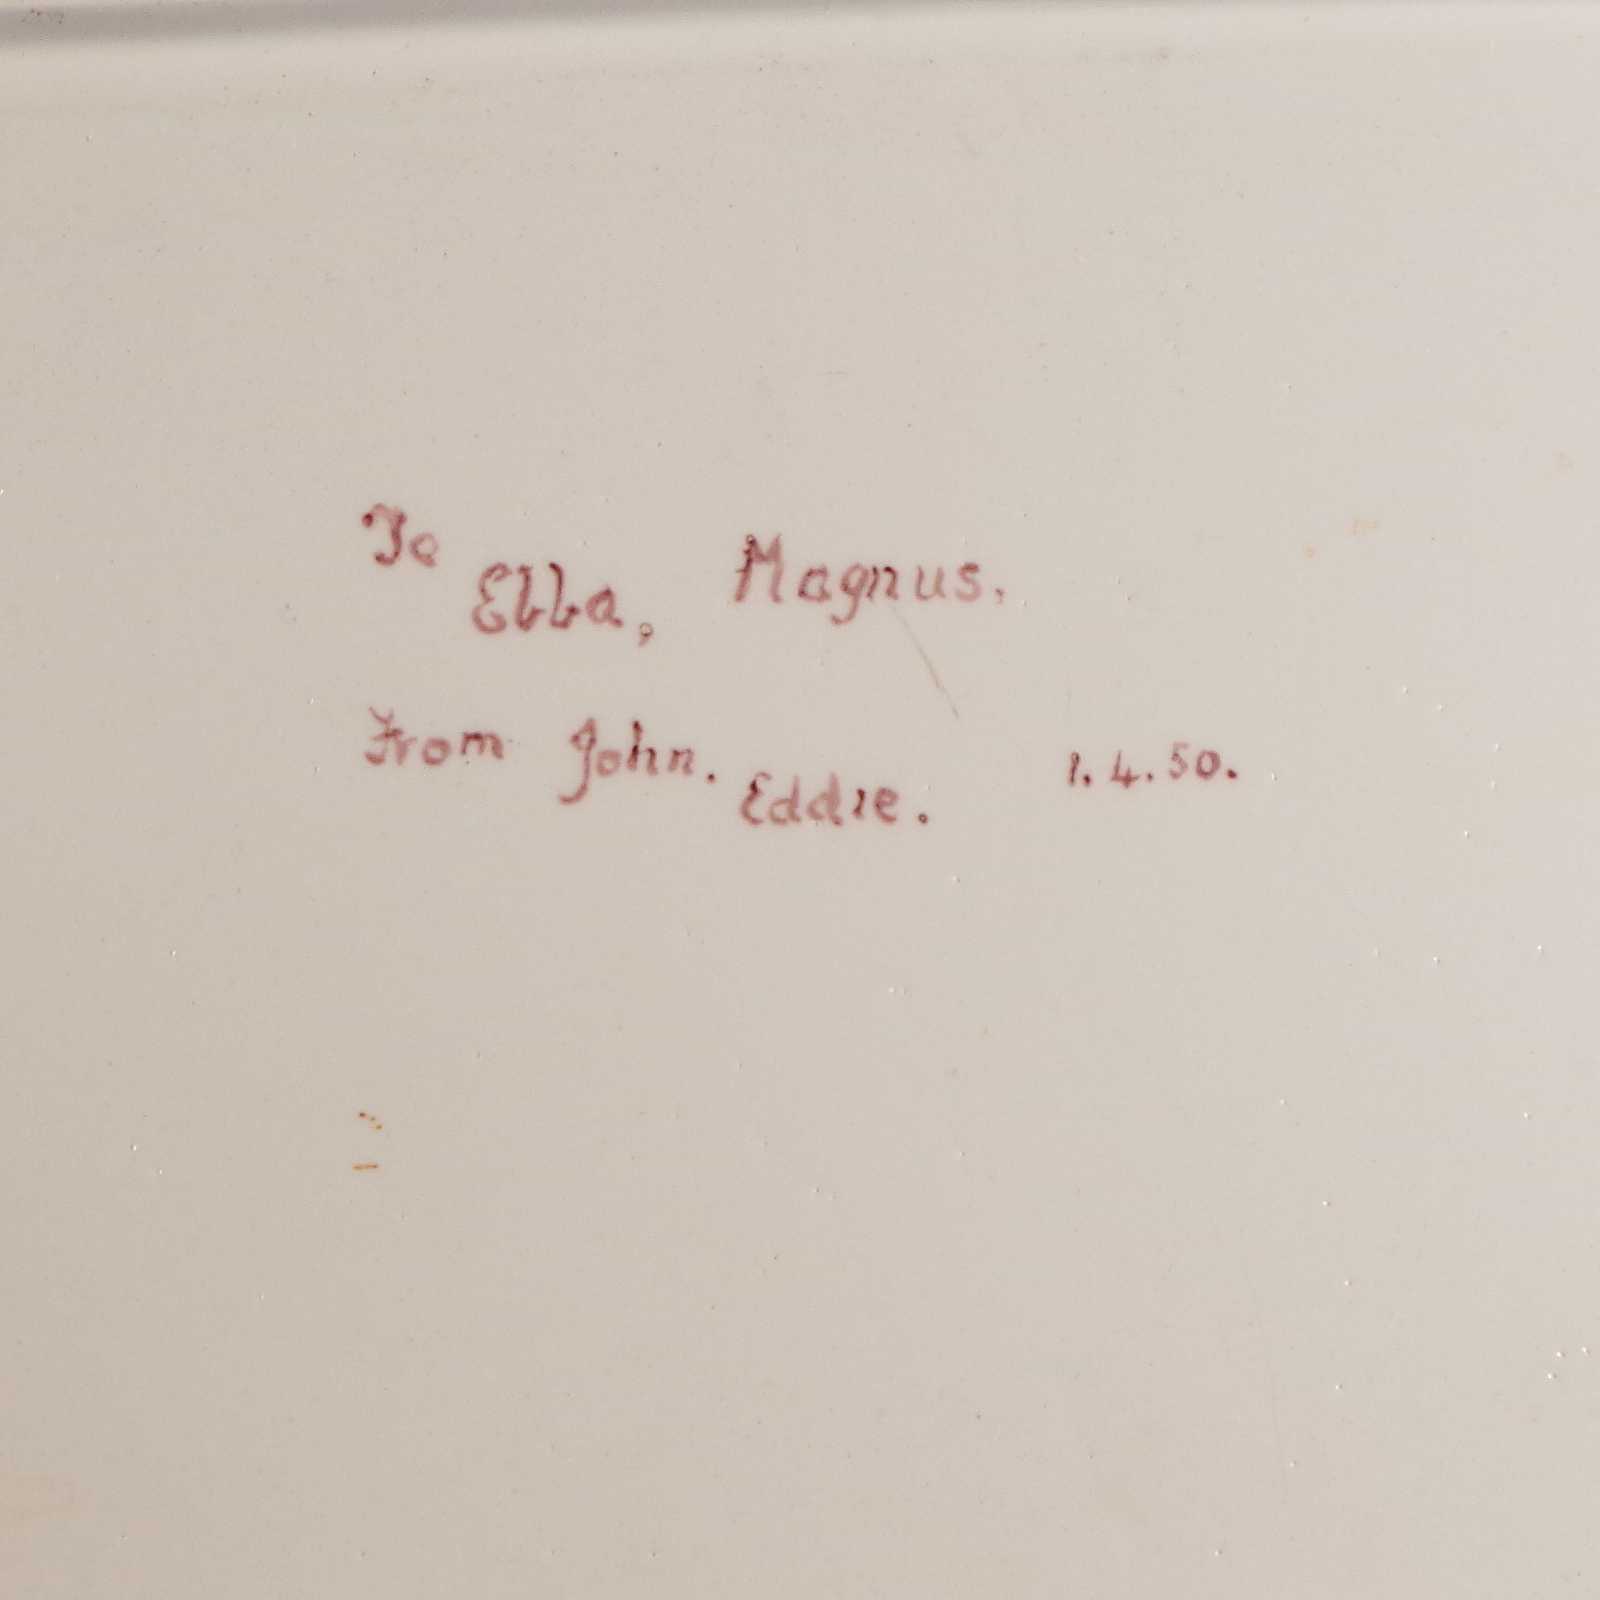 To Ella, Magnus.
From John. Eddie. 1.4.50.